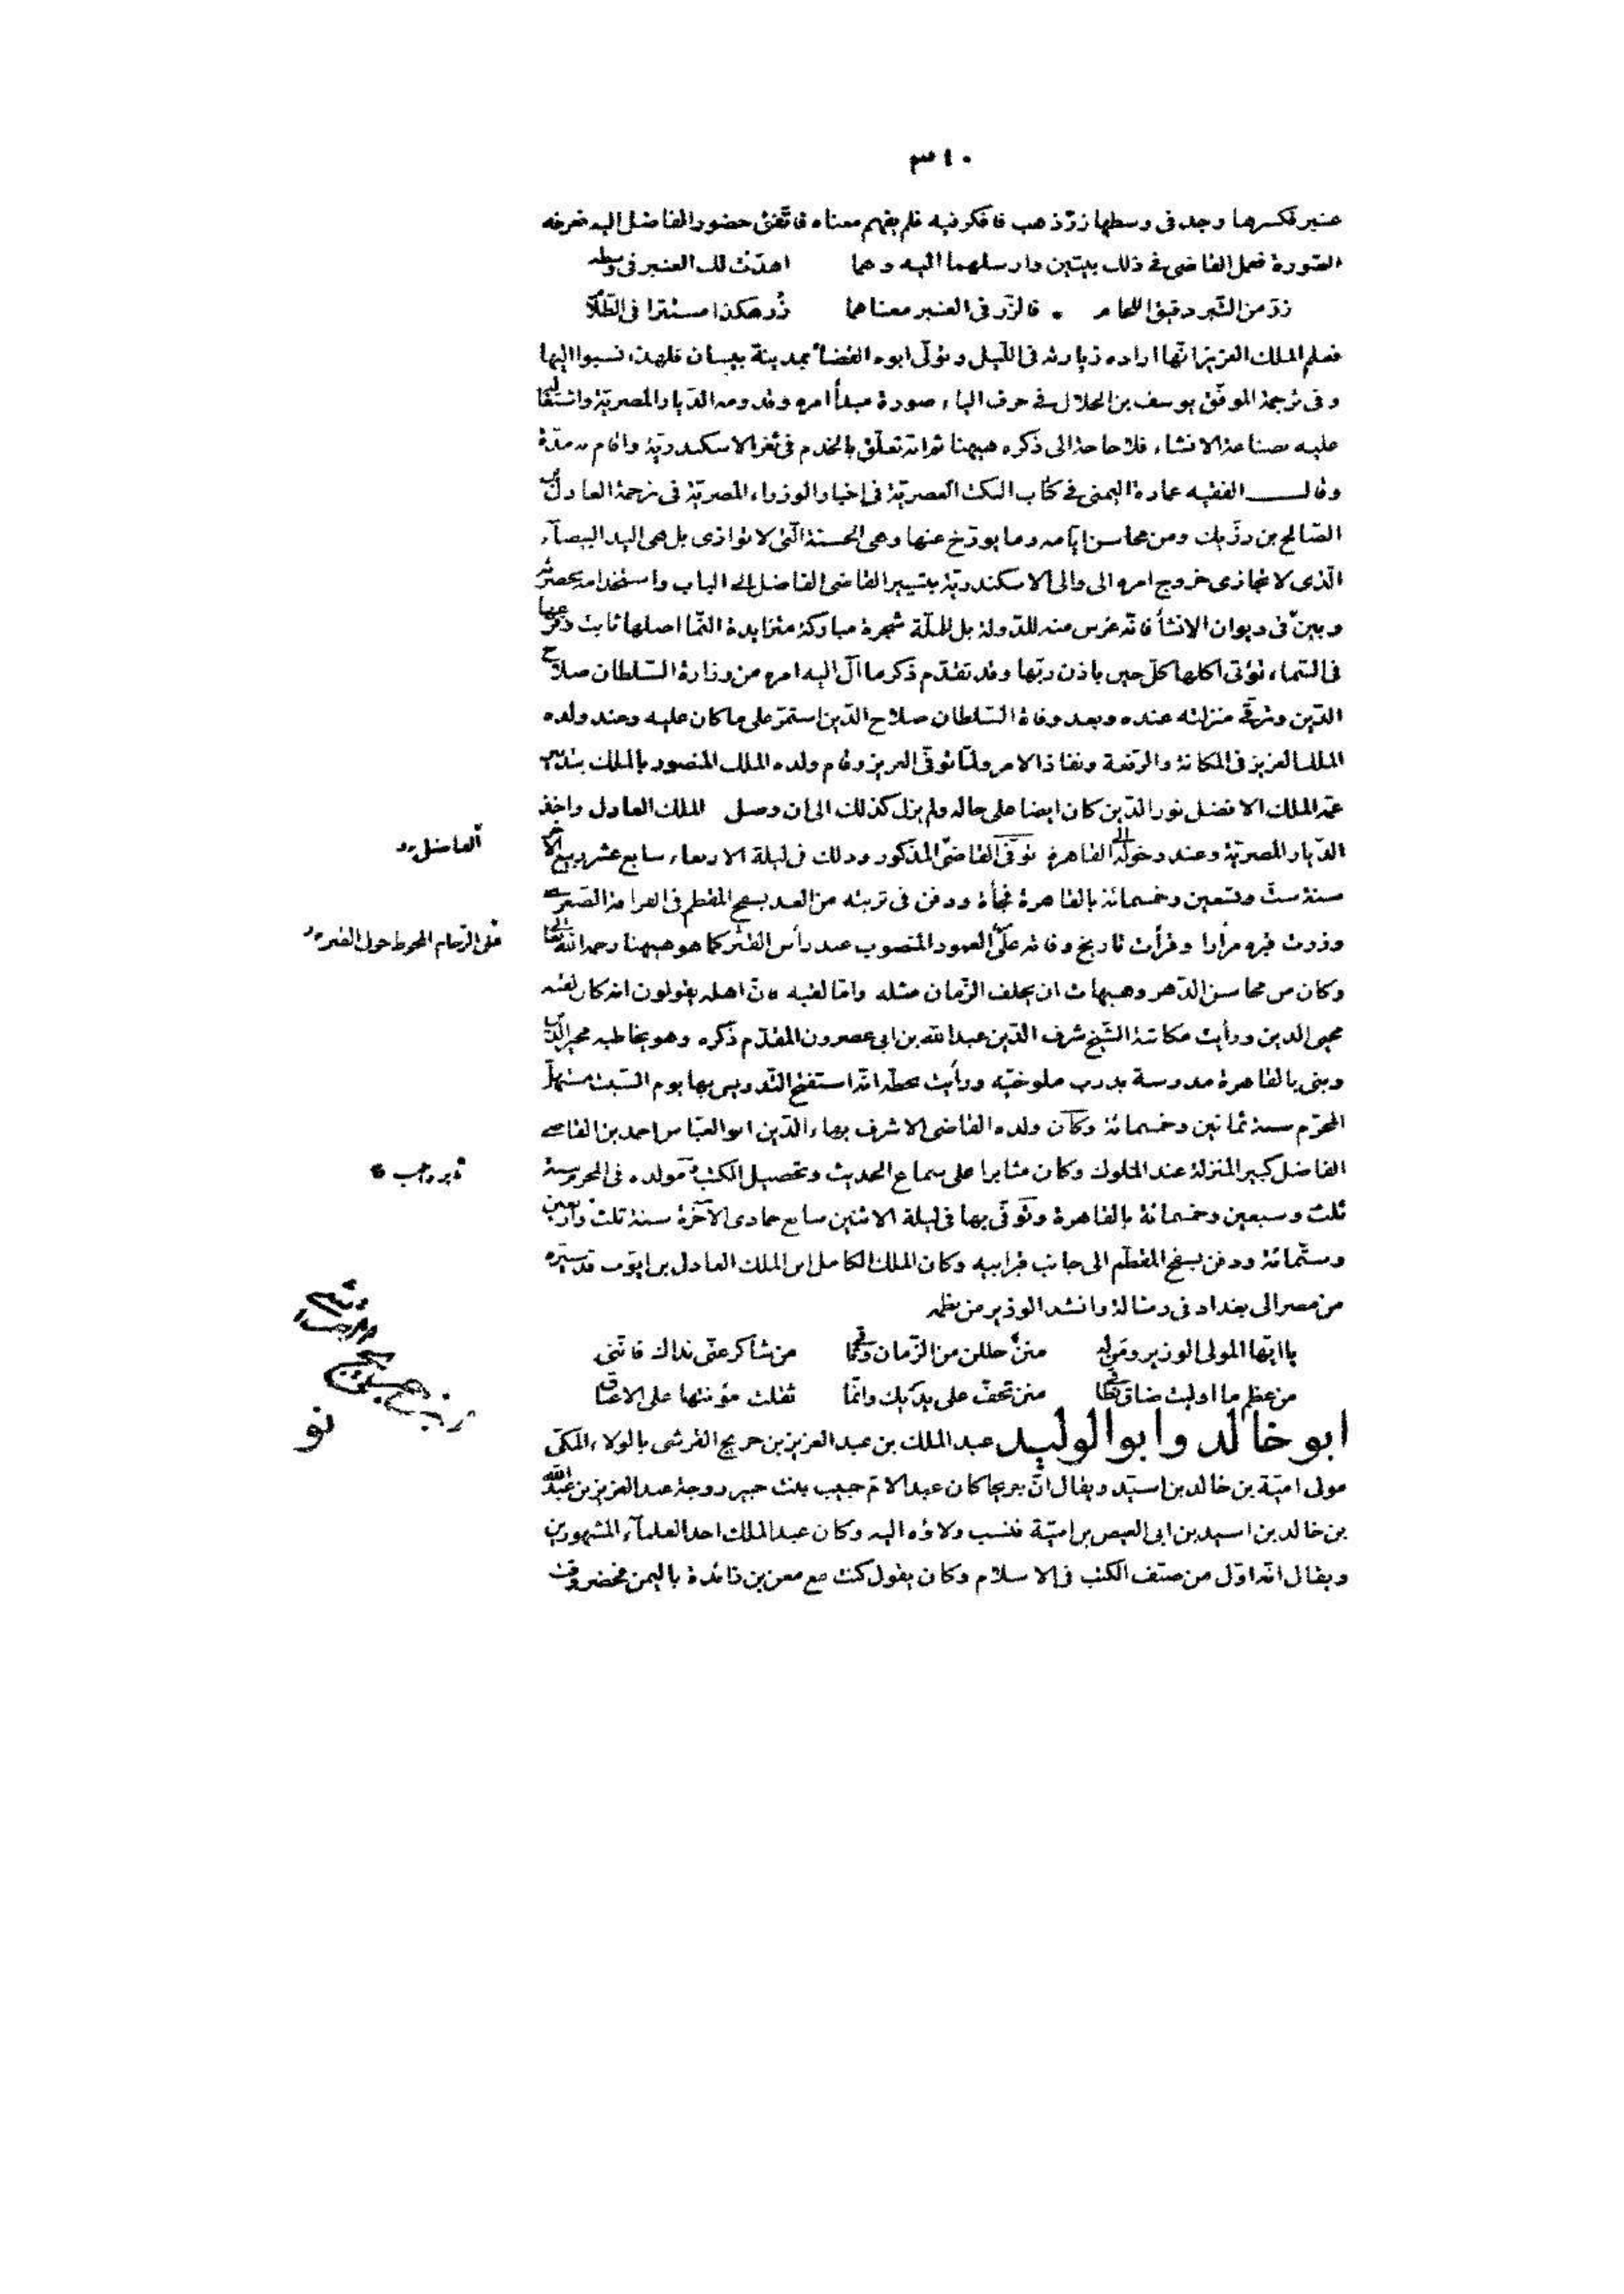 ٣١٠
عنبر فكسرها وجد فى وسطها زرّ ذهب فافكر فيه فلم يفهم معناه فاتّفق حضور الفاضل اليه فعرفه
الصّورة فعمل القاضى فى ذلك بيتين وارسلهما اليه وهما اهدت لك العنبر فى وسطه
زرّ من التّبر دقيق اللّحام فالزّر فى العنبر معناهما زُر هكذا مستترا فى الظّلام
فعلم الملك العزيز انّها اراده زيارته فى اللّيل وتولّى ابوه القضاء بمدينة بيسان فلهذا نسبوا اليها
وفى ترجمة الموفّق يوسف بن الخلال فى حرف الياء صورة مبدأ امره وقدومه الدّيار المصريّة واشتغاله
عليه بصناعة الانشاء فلا حاجة الى ذكره هيهنا ثم انه تعلّق بالخدم فى ثغر الاسكندريّة واقام به مدّة
وقال الفقيه عمارة اليمنى فى كتاب النكت العصريّة فى اخبار الوزراء المصريّة فى ترجمة العادل بن
الصّالح بن رزّيك ومن محاسن ايّامه وما يورّخ عنها وهى الحسنة الّتى لا توازى بل هى اليد البيضآء
الّذى لا تجازى خروج امره الى والى الاسكندريّة بتسيير القاضى الفاضل الى الباب واستخدامه بحضرته
وبين يديه فى ديوان الانشأ فانّه غرس منه للدّولة بل للملّة شجرة مباركة متزايدة النّما اصلها ثابت وفرعها
فى السّماء تؤتى اكلها كلّ حين باذن ربّها وقد تقدّم ذكر ما آل اليه امره من وزارة السّلطان صلاح
الدّين وترقّى منزلته عنده وبعد وفاة السّلطان صلاح الدّين استمرّ على ما كان عليه وعند ولده
الملك العزيز فى المكانة والرّفعة ونفاذ الامر ولمّا توفّى العزيز وقام ولده الملك المنصور بالملك بتدبير
عمّه الملك الافضل نور الدّين كان ايضا على حاله ولم يزل كذلك الى ان وصل الملك العادل واخذ
الدّيار المصريّة وعند دخوله الى القاهرة توفّى القاضى المذكور وذلك فى ليلة الاربعاء سابع عشر ربيع الآخر
الفاضل
سنة ستّ وتسعين وخمسمائة بالقاهرة فجأة ودفن فى تربته من الغد بسفح المقطم فى القرافة الصّغرى
وزرت قبره مرارا وقرأت تاريخ وفاته على العمود المنصوب عند رأس القبر كما هو هيهنا رحمه الله تعالى
على الرّخام المحوط حول القبر
وكان من محاسن الدّهر وهيهات ان يخلف الزّمان مثله وامّا لقبه فانّ اهله يقولون انه كان لقبه
محيى الدين ورأيت مكاتبة الشّيخ شرف الدّين عبد الله بن ابى عصرون المقدّم ذكره وهو يخاطبه مجير الدّين
وبنى بالقاهرة مدرسة بدرب ملوخيّه ورأيت بخطّه انّه استفتح التّدريس بها يوم السّبت مستهلّ
المحرّم سنة ثمانين وخمسمائة وكان ولده القاضى الاشرف بهاء الدّين ابو العبّاس احمد بن القاضى
الفاضل كبير المنزلة عند الملوك وكان مثابرا على سماع الحديث وتحصيل الكتب مولده فى المحرم سنة
ثلث وسبعين وخمسمائة بالقاهرة وتوفّى بها فى ليلة الاثنين سابع جمادى الآخرة سنة ثلث واربعين
وستّمائة ودفن بسفح المقطّم الى جانب قبر ابيه وكان الملك الكامل ابن الملك العادل بن ايّوب قد سيّره
من مصر الى بغداد فى رسالة وانشد الوزير من نظمه
يا ايّها المولى الوزير ومن له مننٌ حللن من الزّمان وثاقى من شاكر عنّى نداك فانّنى
من عظم ما اوليت ضاق نطاقى منن تخفّ على يديك وانّما ثقلت مؤنتها على الاعناق
ابو خالد وابو الوليد عبد الملك بن عبد العزيز بن جريج القرشى بالولاء المكّى
مولى اميّة بن خالد بن اسيّد ويقال انّ جريجا كان عبدا لامّ حبيب بنت جبير زوجة عبد العزيز بن عبد الله
بن خالد بن اسيد بن ابى العيص بن اميّة فنسب ولاؤه اليه وكان عبد الملك احد العلمآء المشهورين
ويقال انّه اوّل من صنّف الكتب فى الاسلام وكان يقول كنت مع معن بن زائدة باليمن فحضر وقت